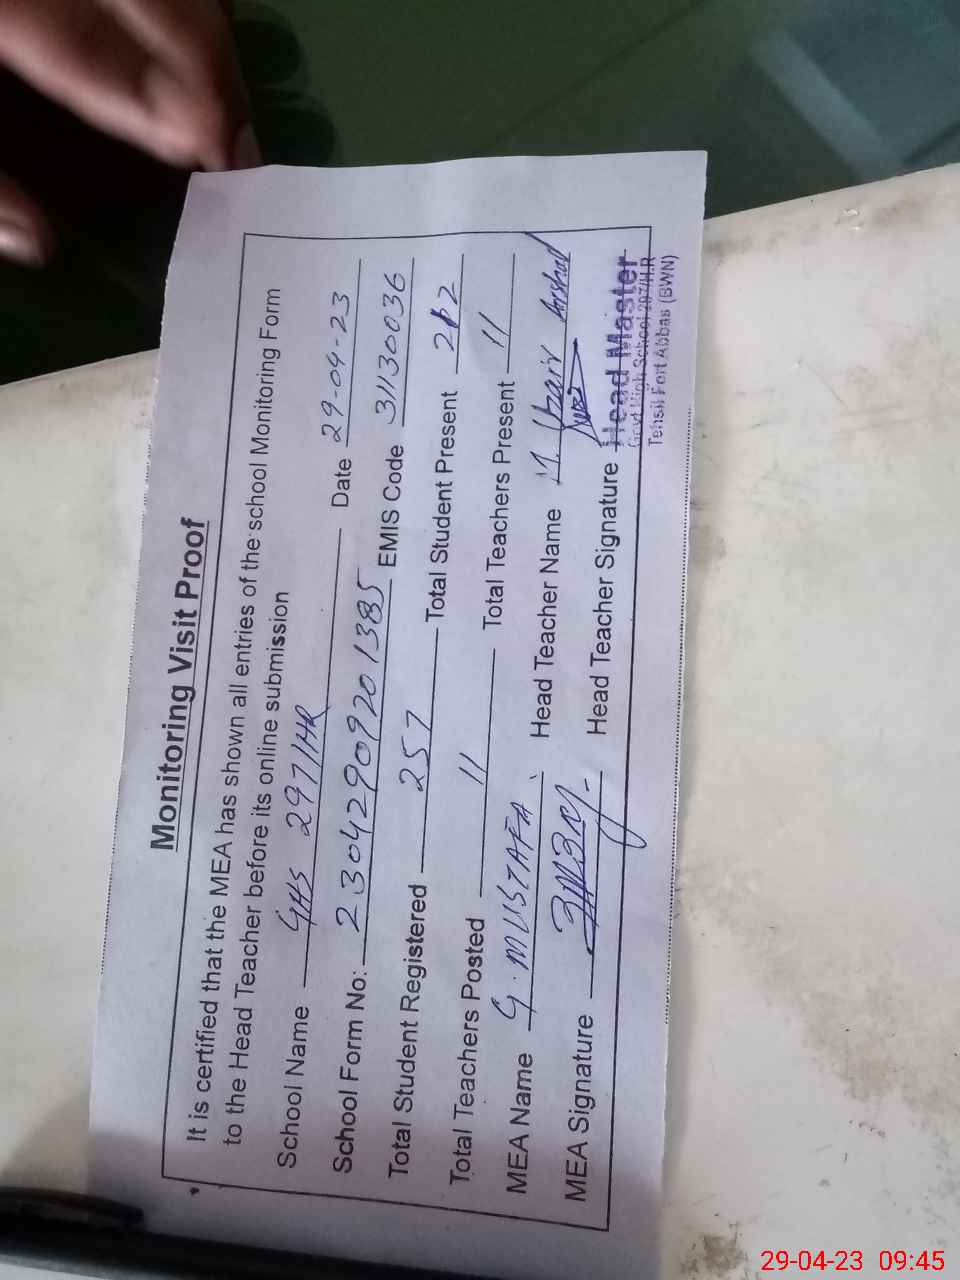 Monitoring Visit Proof
It is certified that the MEA has shown all entries of the school Monitoring Form
to the Head Teacher before its online submission
School Name GHS 297/HR Date 29-04-23
School Form No: 23042909201385 EMIS Code 31130036
Total Student Registered 257 Total Student Present 212
Total Teachers Posted 11 Total Teachers Present 11
MEA Name G. MUSTAFA Head Teacher Name Arshad
MEA Signature Head Teacher Signature Head Master
Govt High School 297/H.R
Tehsil Fort Abbas (BWN)
29-04-23 09:45